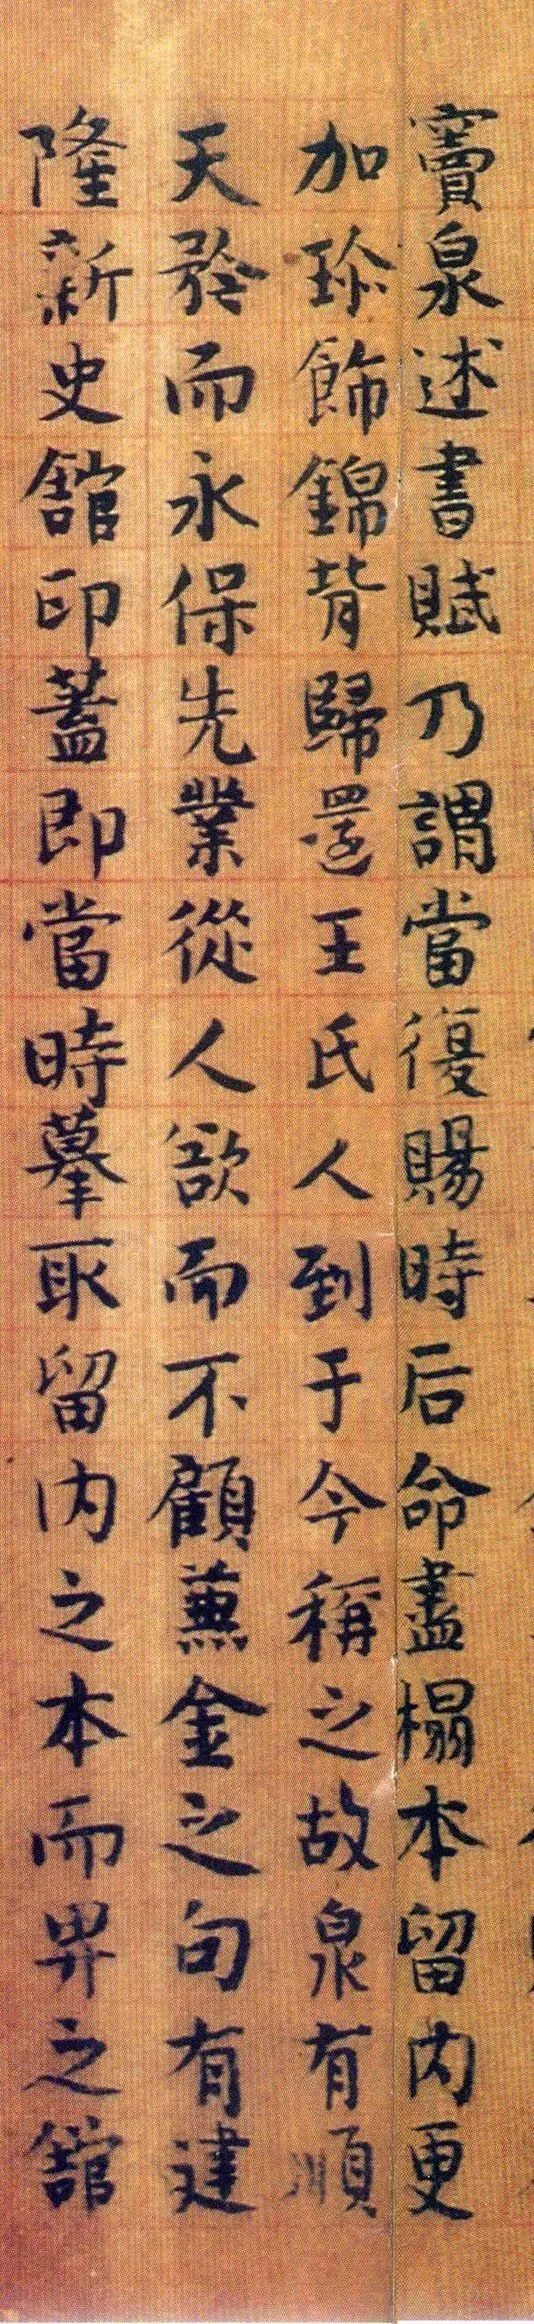 竇泉述書賦乃謂當復賜時后命盡榻本留内更
加珎飾錦背歸還王氏人到于今稱之故泉有順
天矜而永保先業從人欲而不顧蒹金之句有建
隆新史館印蓋即當時摹取留内之本而畀之館